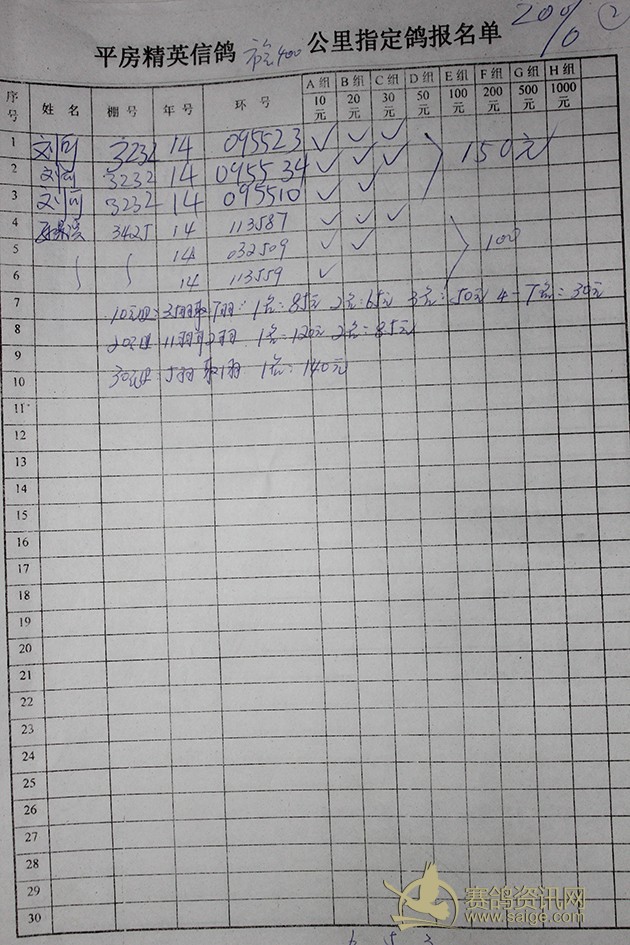 2001/0 ②
平房精英信鸽 市老400 公里指定鸽报名单
序号 姓 名 棚 号 年 号 环 号 A 组 10元 B 组 20元 C 组 30元 D 组 50元 E 组 100元 F 组 200元 G 组 500元 H 组 1000元
1 刘可 3232 14 095523 ✓ ✓ ✓ 150元
2 刘可 3232 14 095534 ✓ ✓ ✓
3 刘可 3232 14 095510 ✓ ✓
4 3425 14 113587 ✓ ✓ ✓
5 14 032509 ✓ ✓ 100
6 14 113559 ✓
7 10元组: 35羽取7羽: 1名:85元 2名:65元 3名:50元 4-7名:30元
8 20元组 11羽取2羽 1名:120元 2名:85元
9
10 30元组 5羽取1羽 1名:140元
11
12
13
14
15
16
17
18
19
20
21
22
23
24
25
26
27
28
29
30
赛鸽资讯网
www.saige.com
6 5 3